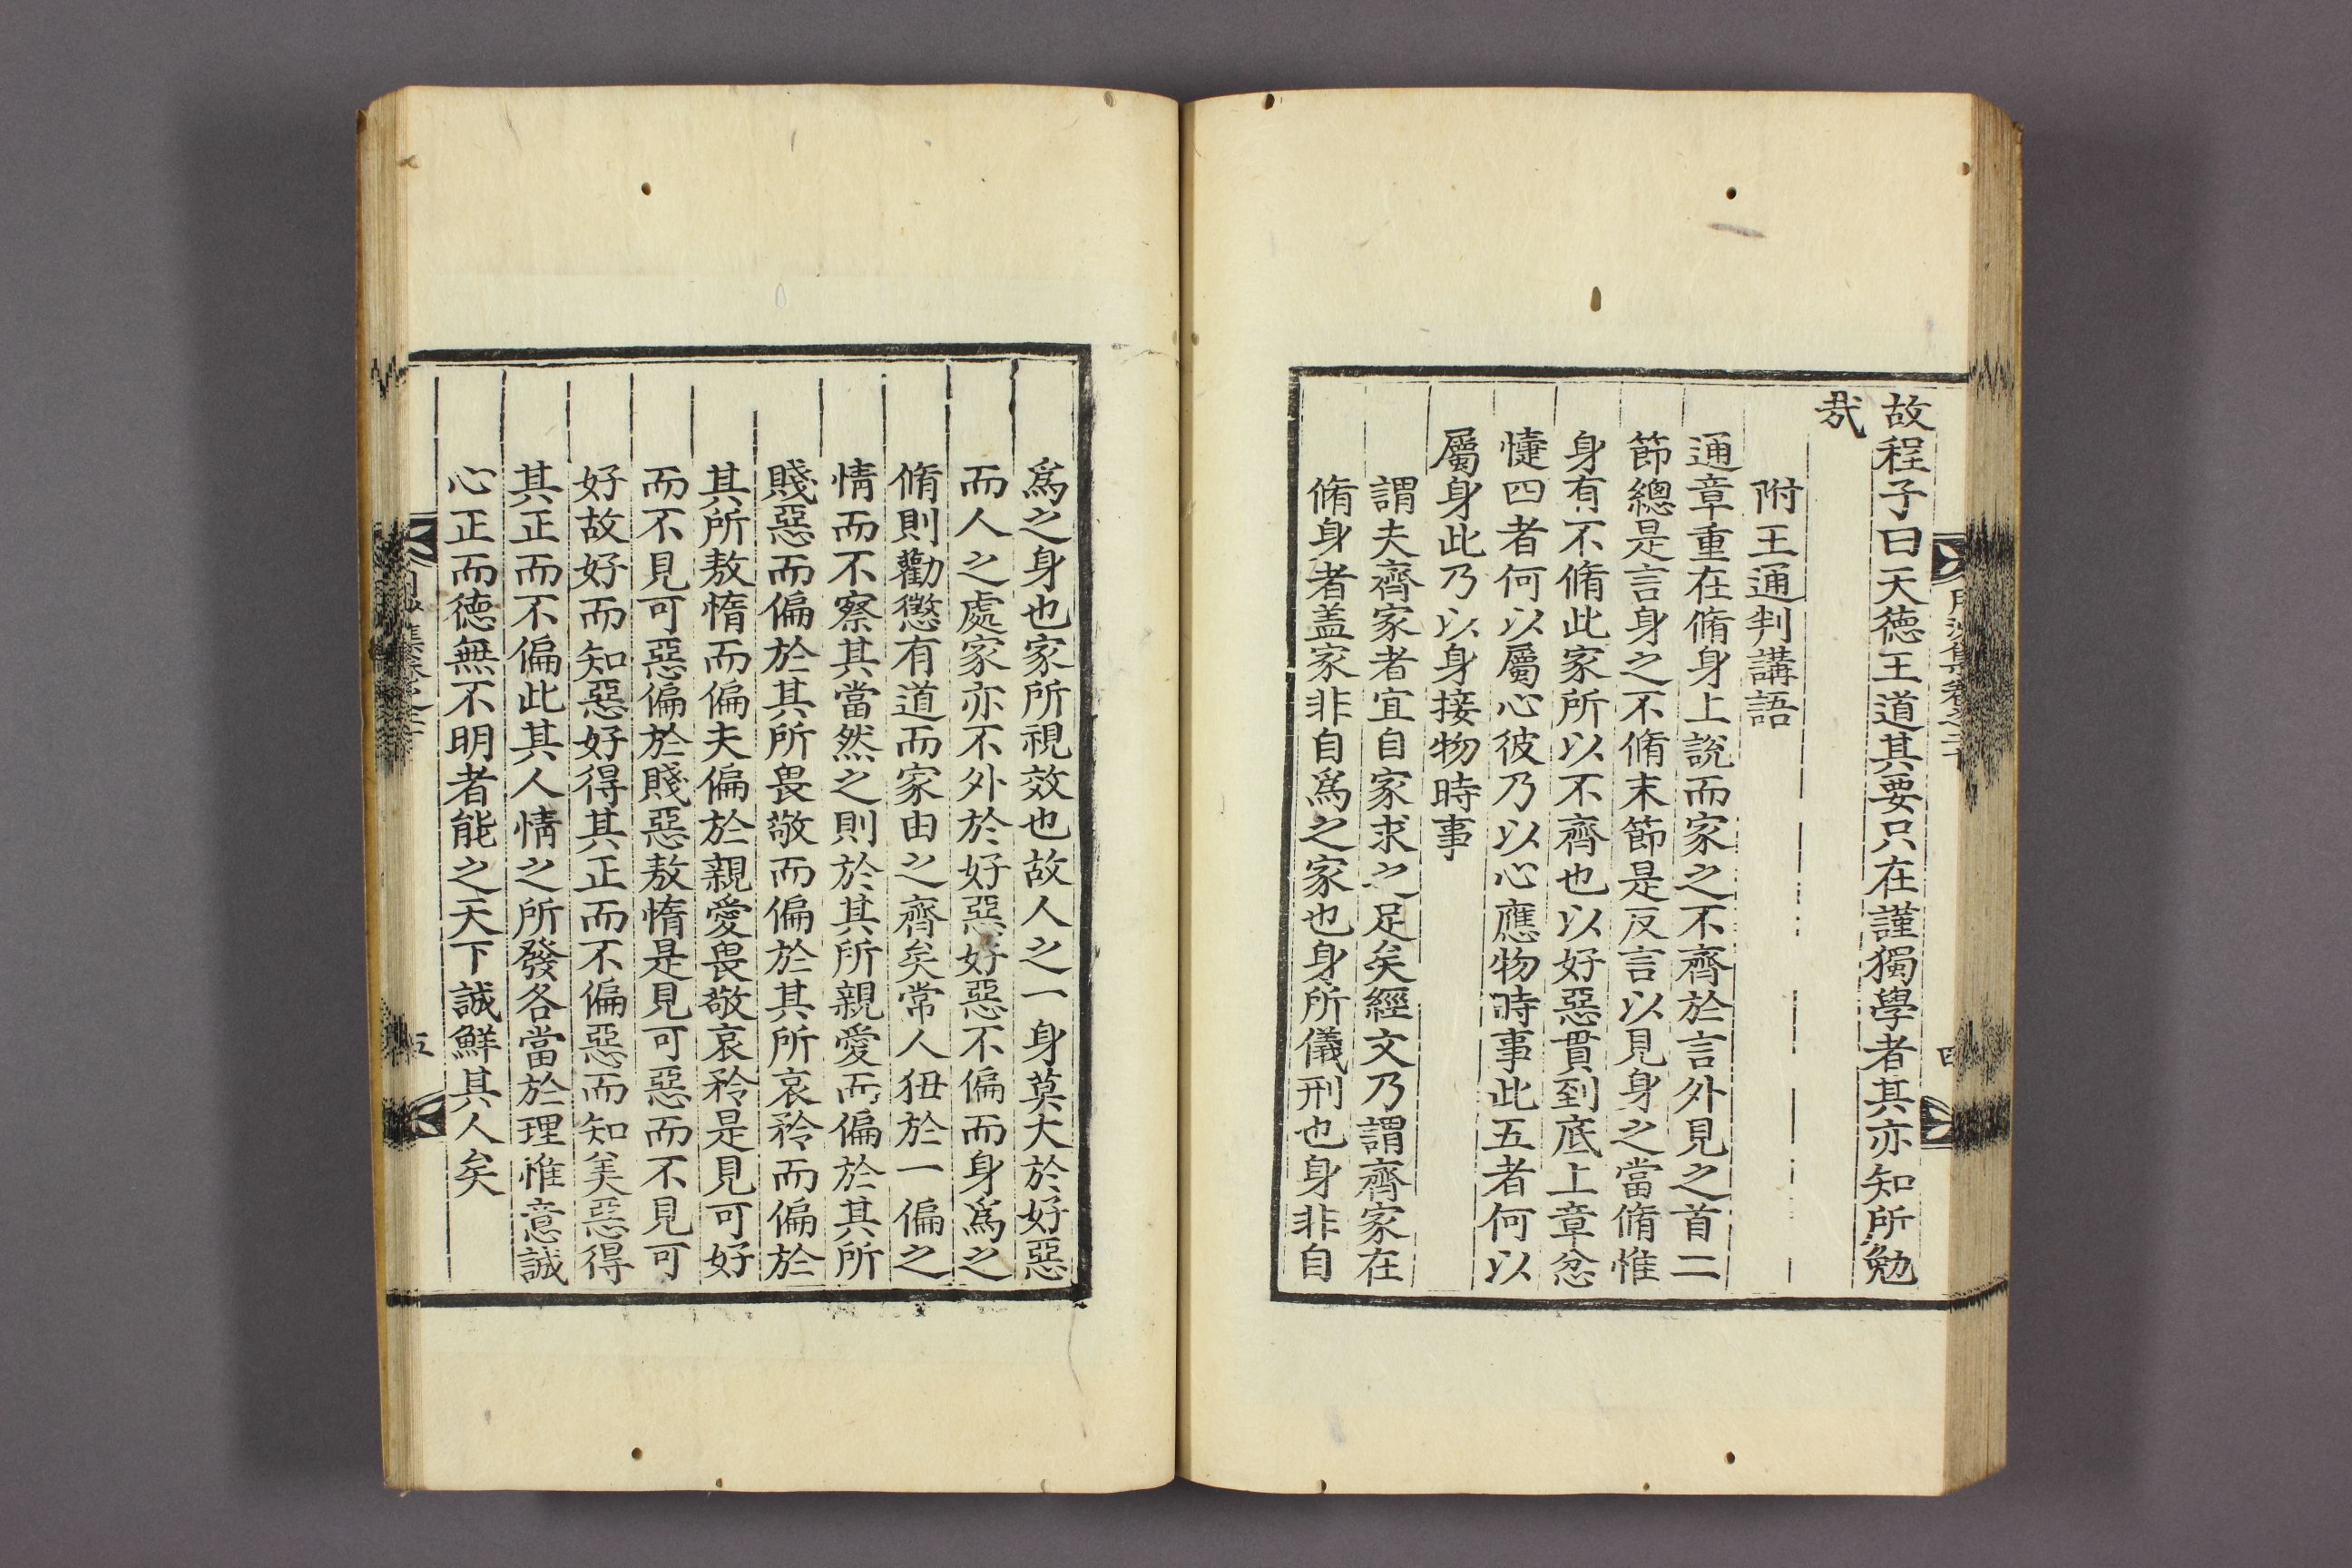 故程子曰天德王道其要只在謹獨學者其亦知所勉
哉
附王通判講語
通章重在脩身上說而家之不齊於言外見之首二
節總是言身之不脩末節是反言以見身之當脩惟
身有不脩此家所以不齊也以好惡貫到底上章忿
懥四者何以屬心彼乃以心應物時事此五者何以
屬身此乃以身接物時事
謂夫齊家者宜自家求之足矣經文乃謂齊家在
脩身者盖家非自爲之家也身所儀刑也身非自
爲之身也家所視效也故人之一身莫大於好惡
而人之處家亦不外於好惡好惡不偏而身爲之
脩則勸懲有道而家由之齊矣常人狃於一偏之
情而不察其當然之則於其所親愛而偏於其所
賤惡而偏於其所畏敬而偏於其所哀矜而偏於
其所敖惰而偏夫偏於親愛畏敬哀矜是見可好
而不見可惡偏於賤惡敖惰是見可惡而不見可
好故好而知惡好得其正而不偏惡而知美惡得
其正而不偏此其人情之所發各當於理惟意誠
心正而德無不明者能之天下誠鮮其人矣
五